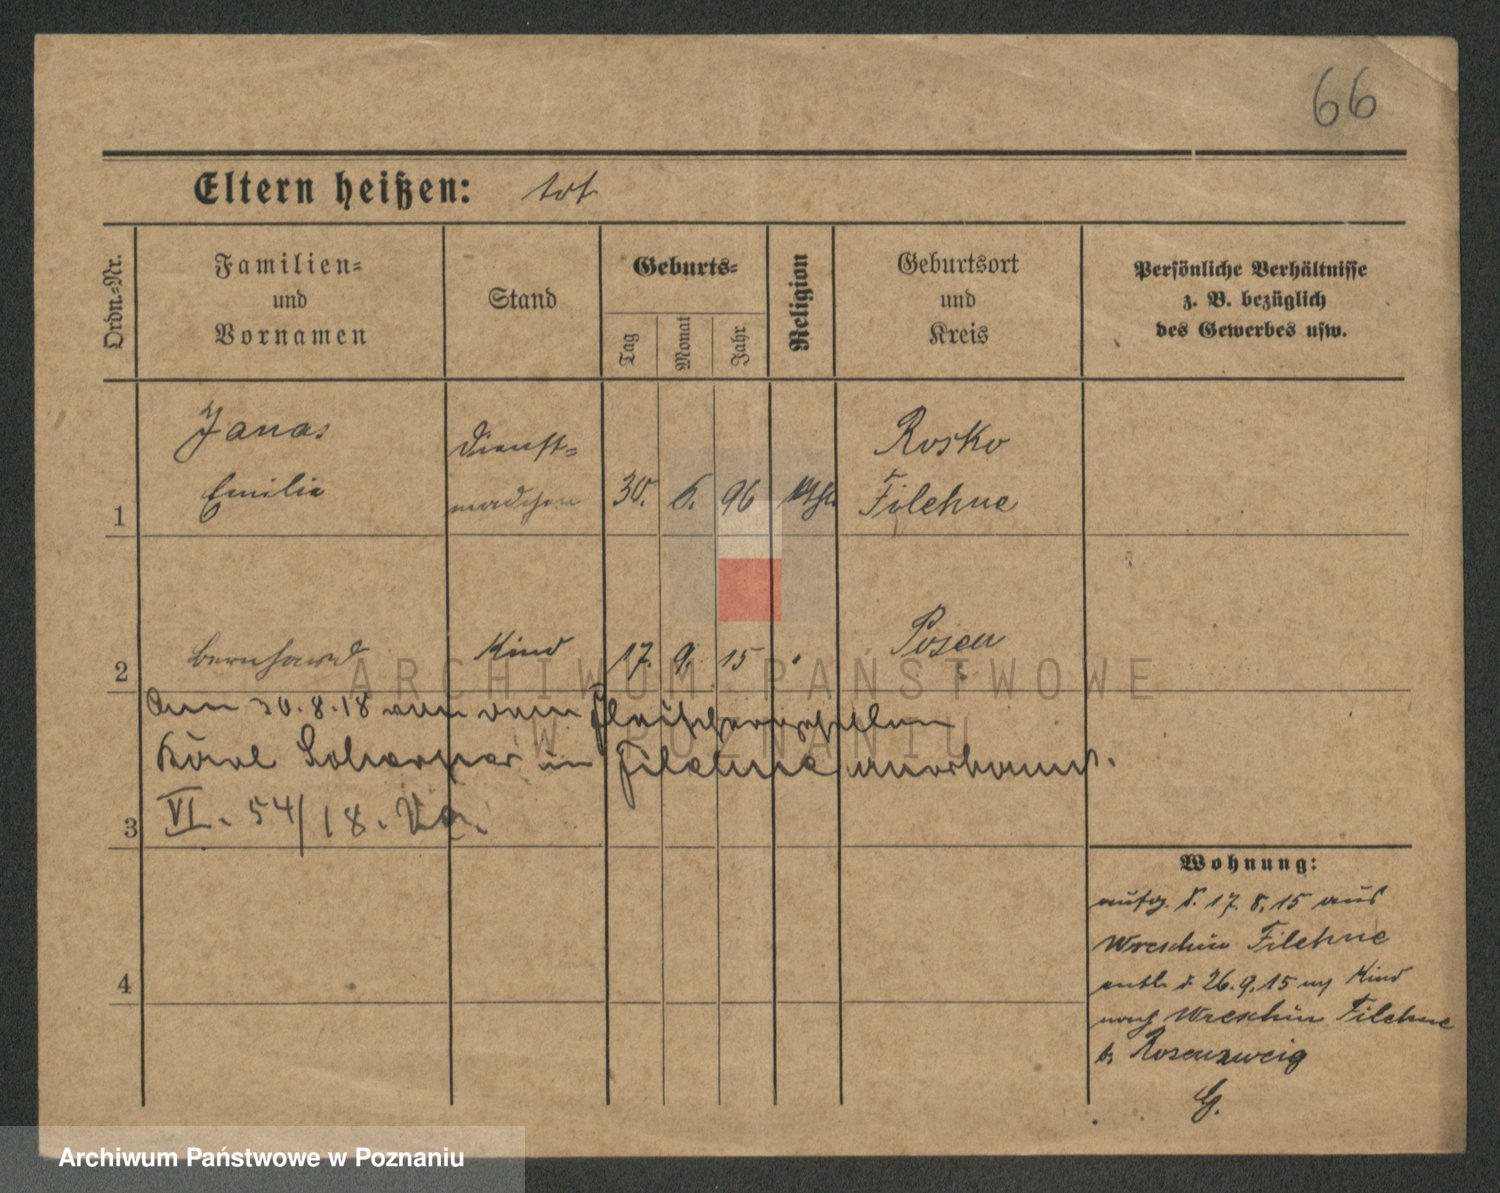 66
Eltern heißen: tot
Ordn.-Nr.
Familien-
und
Vornamen
Stand
Geburts-
Tag
Monat
Jahr
Religion
Geburtsort
und
Kreis
Persönliche Verhältnisse
z. B. bezüglich
des Gewerbes usw.
1
Janas
Emilie
Dienst-
mädchen
30. 6. 96 kath.
Rosko
Filehne
2
Bernhard
Kind
17. 9. 15
Posen
Am 30.8.18 von dem
Karl in Filehne anerkannt.
3
VI. 54/18.
4
Wohnung:
aufg. d. 17. 8. 15 aus
Wreschin Filehne
entl. d. 26. 9. 15 m Kind
nach Wreschin Filehne
b. Rosenzweig
G.
ARCHIWUM PAŃSTWOWE
W POZNANIU
Archiwum Państwowe w Poznaniu